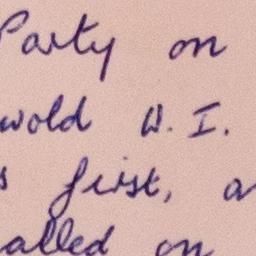 Party on
wold W. I.
s first, a
alled on